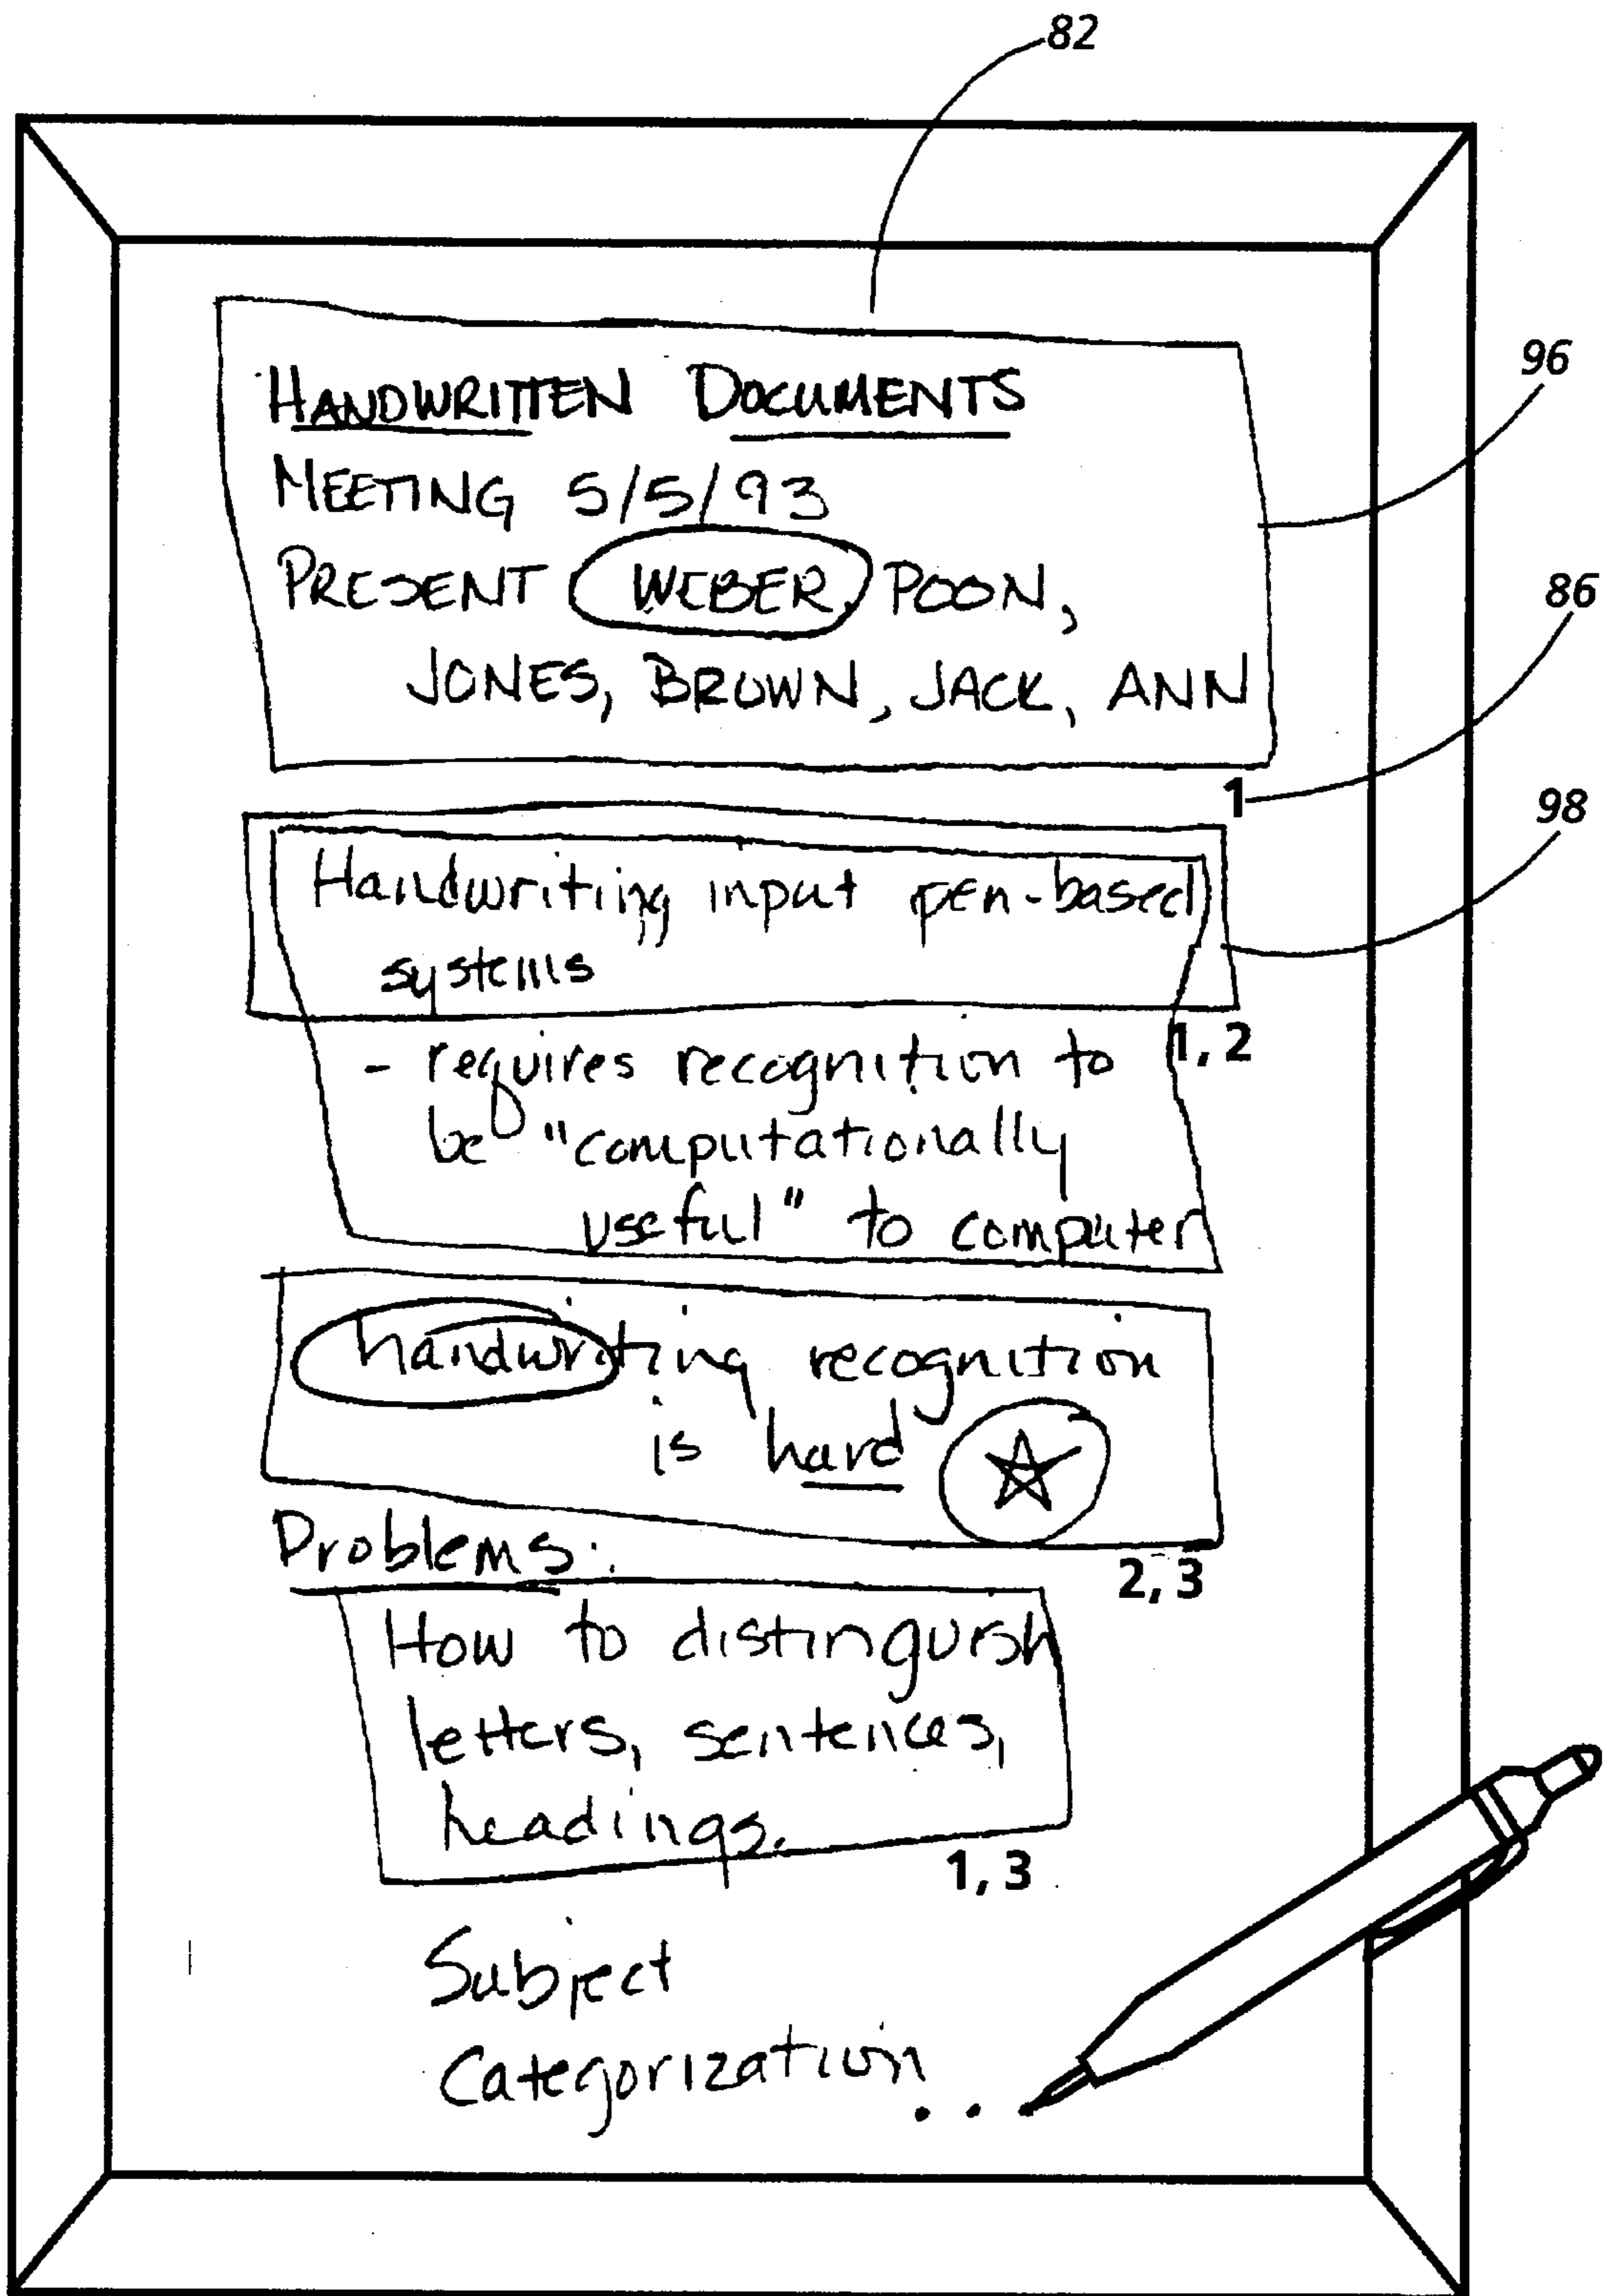 82
HANDWRITTEN DOCUMENTS
96
MEETING 5/5/93
PRESENT WEBER, POON,
86
JONES, BROWN, JACK, ANN
1
98
Handwriting input pen-based
systems
1, 2
- requires recognition to
be "computationally
useful" to computer
handwriting recognition
is hard
Problems:
2, 3
How to distinguish
letters, sentences,
headings.
1, 3
Subject
Categorization...